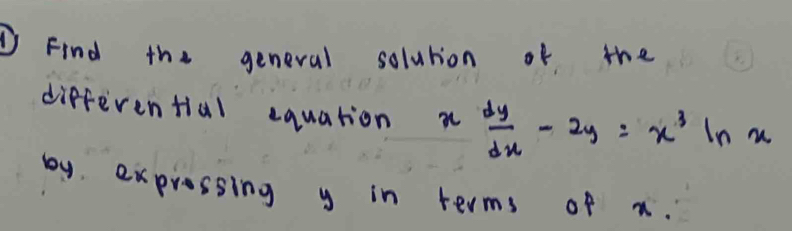 ① Find the general solution of the
differential equation x dy/dx - 2y = x³ ln x
by expressing y in terms of x.